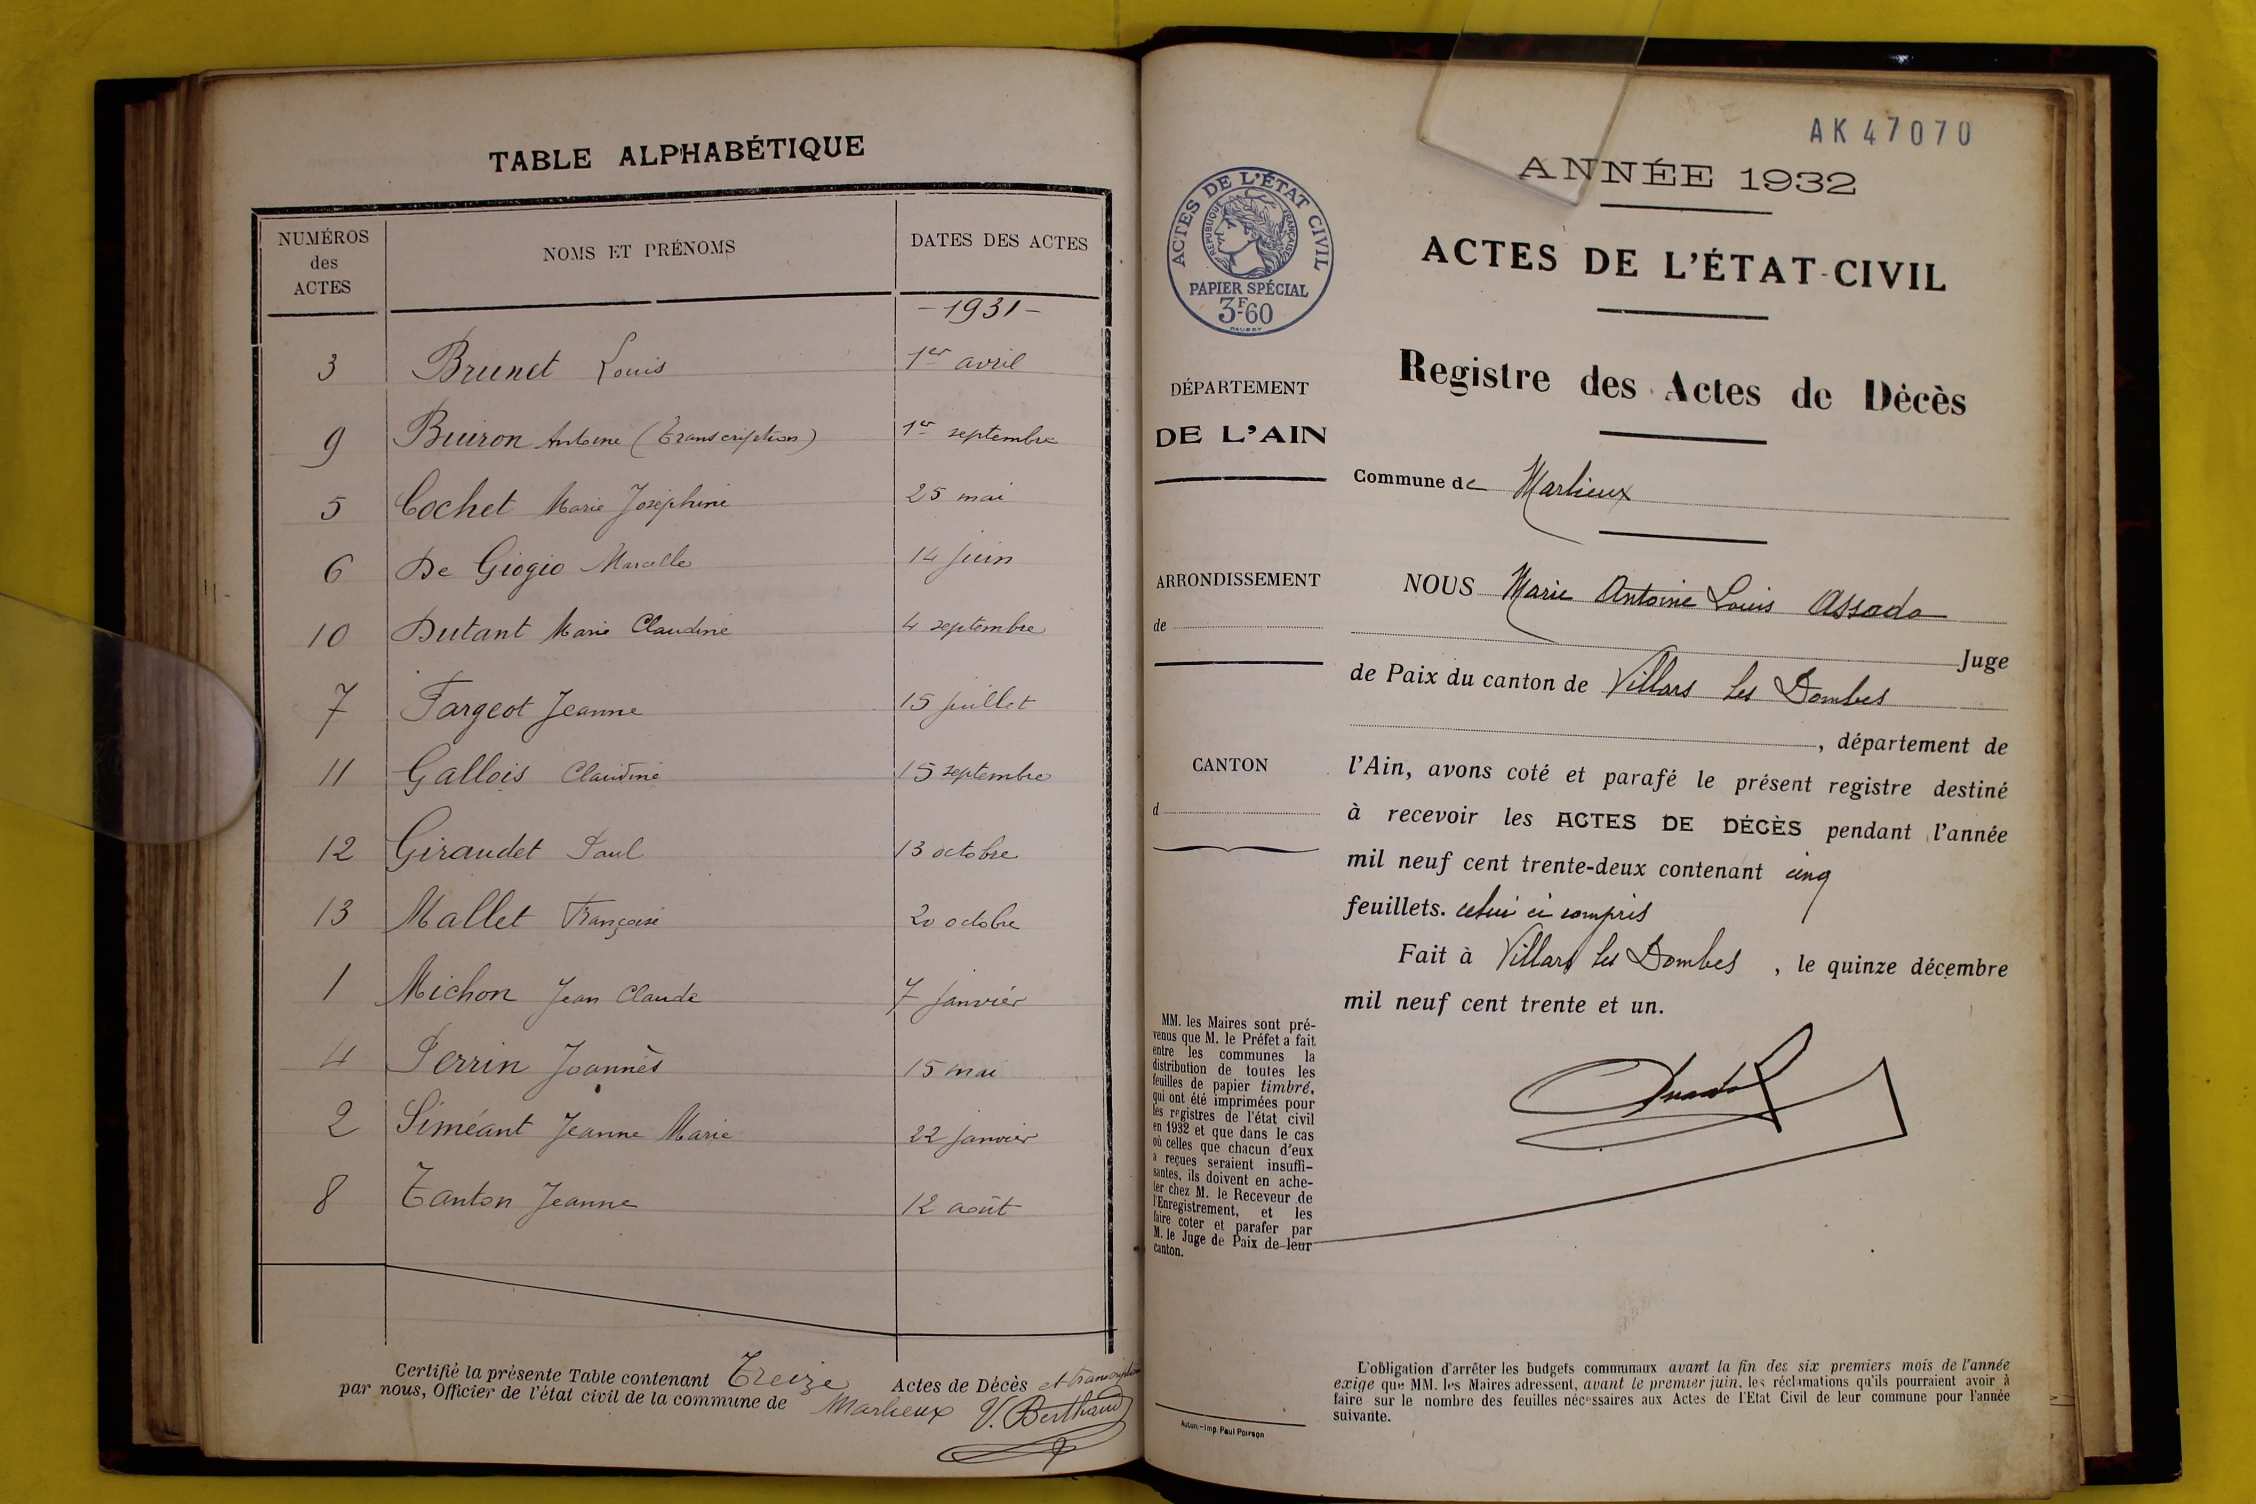 TABLE ALPHABÉTIQUE
NUMÉROS des ACTES NOMS ET PRÉNOMS DATES DES ACTES
- 1931 -
3 Brunet Louis 1er avril
9 Buiron Antoine (Transcription) 1er septembre
5 Cochet Marie Joséphine 25 mai
6 De Giogio Marcelle 14 juin
10 Dutant Marie Claudine 4 septembre
7 Fargeot Jeanne 15 juillet
11 Gallois Claudine 15 septembre
12 Giraudet Paul 13 octobre
13 Mallet Françoise 20 octobre
1 Michon Jean Claude 7 janvier
4 Perrin Joannès 15 mai
2 Siméant Jeanne Marie 22 janvier
8 Tanton Jeanne 12 août
Certifié la présente Table contenant Treize Actes de Décès et transcription
par nous, Officier de l'état civil de la commune de Marlieux V. Berthaud
AK 47070
ANNÉE 1932
ACTES DE L'ÉTAT CIVIL
RÉPUBLIQUE FRANÇAISE
PAPIER SPÉCIAL
3F.60
ACTES DE L'ÉTAT-CIVIL
Registre des Actes de Décès
DÉPARTEMENT
DE L'AIN
Commune de Marlieux
ARRONDISSEMENT
de
CANTON
d
NOUS Marie Antoine Louis Assada
Juge
de Paix du canton de Villars les Dombes
, département de
l'Ain, avons coté et parafé le présent registre destiné
à recevoir les ACTES DE DÉCÈS pendant l'année
mil neuf cent trente-deux contenant cinq
feuillets. celui ci compris
Fait à Villars les Dombes , le quinze décembre
mil neuf cent trente et un.
MM. les Maires sont pré-
venus que M. le Préfet a fait
entre les communes la
distribution de toutes les
feuilles de papier timbré,
qui ont été imprimées pour
les registres de l'état civil
en 1932 et que dans le cas
où celles que chacun d'eux
a reçues seraient insuffi-
santes, ils doivent en ache-
ter chez M. le Receveur de
l'Enregistrement, et les
faire coter et parafer par
M. le Juge de Paix de leur
canton.
Autun.-Imp. Paul Poirson
L'obligation d'arrêter les budgets communaux avant la fin des six premiers mois de l'année
exige que MM. les Maires adressent, avant le premier juin, les réclamations qu'ils pourraient avoir à
faire sur le nombre des feuilles nécessaires aux Actes de l'Etat Civil de leur commune pour l'année
suivante.